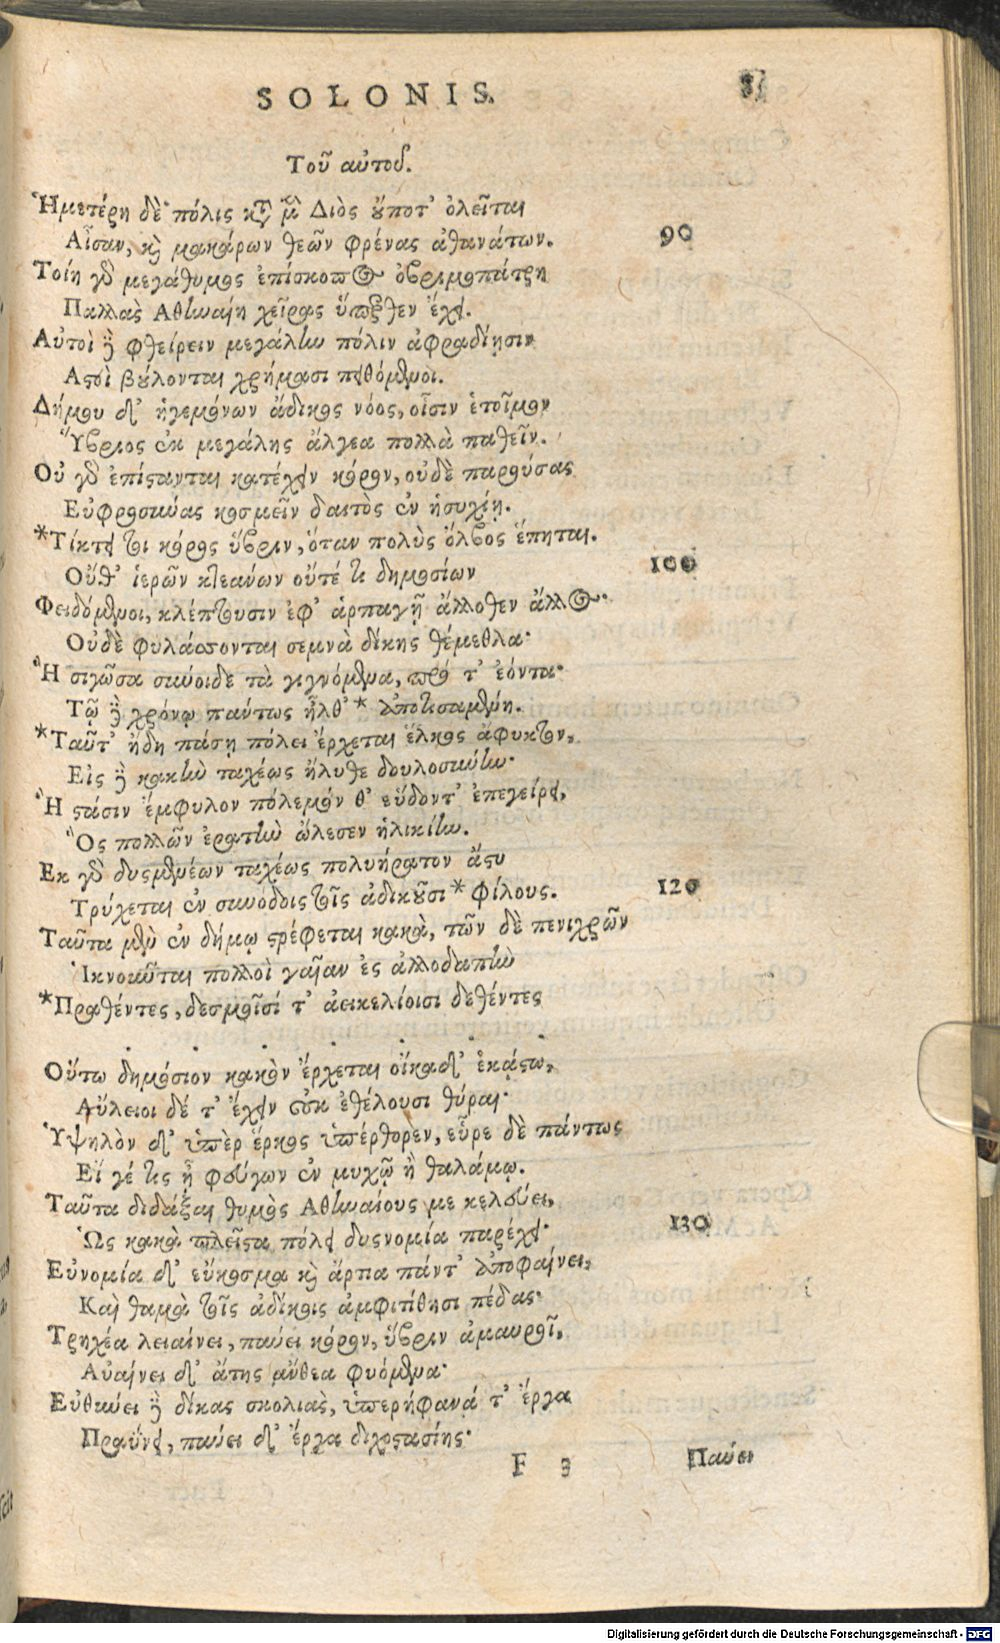 SOLONIS.
Τοῦ αὐτοῦ.
Ἡμετέρη δὲ πόλις κατὰ μὲν Διὸς οὔποτ' ὀλεῖται
Αἶσαν, καὶ μακάρων θεῶν φρένας ἀθανάτων.
90
Τοίη γὰρ μεγάθυμος ἐπίσκοπος ὀβριμοπάτρη
Παλλὰς Αθηναίη χεῖρας ὕπερθεν ἔχει.
Αὐτοὶ δὲ φθείρειν μεγάλην πόλιν ἀφραδίῃσιν
Αστοὶ βούλονται χρήμασι πειθόμενοι.
Δήμου δ' ἡγεμόνων ἄδικος νόος, οἷσιν ἑτοῖμον
Ὕβριος ἐκ μεγάλης ἄλγεα πολλὰ παθεῖν.
Οὐ γὰρ ἐπίστανται κατέχειν κόρον, οὐδὲ παρούσας
Εὐφροσύνας κοσμεῖν δαιτὸς ἐν ἡσυχίῃ.
*Τίκτει τοι κόρος ὕβριν, ὅταν πολὺς ὄλβος ἕπηται.
Οὔθ' ἱερῶν κτεάνων οὔτέ τι δημοσίων
100
Φειδόμενοι, κλέπτουσιν ἐφ' ἁρπαγῇ ἄλλοθεν ἄλλος·
Οὐδὲ φυλάσσονται σεμνὰ δίκης θέμεθλα·
Ἣ σιγῶσα σύνοιδε τὰ γιγνόμενα, πρό τ' ἐόντα·
Τῷ δὲ χρόνῳ πάντως ἦλθ' * ἀποτισαμένη.
*Ταῦτ' ἤδη πάσῃ πόλει ἔρχεται ἕλκος ἄφυκτον,
Εἰς δὲ κακὴν ταχέως ἤλυθε δουλοσύνην·
Ἣ στάσιν ἔμφυλον πόλεμόν θ' εὕδοντ' ἐπεγείρει,
Ὃς πολλῶν ἐρατὴν ὤλεσεν ἡλικίην.
Εκ γὰρ δυσμενέων ταχέως πολυήρατον ἄστυ
Τρύχεται ἐν συνόδοις τοῖς ἀδικοῦσι * φίλους.
120
Ταῦτα μὲν ἐν δήμῳ στρέφεται κακὰ, τῶν δὲ πενιχρῶν
Ἱκνοῦνται πολλοὶ γαῖαν ἐς ἀλλοδαπὴν
*Πραθέντες, δεσμοῖσί τ' ἀεικελίοισι δεθέντες
. . . . . .
Οὕτω δημόσιον κακὸν ἔρχεται οἴκαδ' ἑκάστῳ,
Αὔλειοι δέ τ' ἔχειν οὐκ ἐθέλουσι θύραι·
Ὑψηλὸν δ' ὑπὲρ ἕρκος ὑπέρθορεν, εὗρε δὲ πάντως
Εἴ γέ τις ᾖ φεύγων ἐν μυχῷ ἢ θαλάμῳ.
Ταῦτα διδάξαι θυμὸς Αθηναίους με κελεύει,
Ὡς κακὰ πλεῖστα πόλει δυσνομία παρέχει·
130
Εὐνομία δ' εὔκοσμα καὶ ἄρτια πάντ' ἀποφαίνει,
Καὶ θαμὰ τοῖς ἀδίκοις ἀμφιτίθησι πέδας·
Τρηχέα λειαίνει, παύει κόρον, ὕβριν ἀμαυροῖ,
Αὐαίνει δ' ἄτης ἄνθεα φυόμενα·
Εὐθύνει δὲ δίκας σκολιὰς, ὑπερήφανά τ' ἔργα
Πραΰνει, παύει δ' ἔργα διχοστασίης·
F 3
Παύει
Digitalisierung gefördert durch die Deutsche Forschungsgemeinschaft - DFG